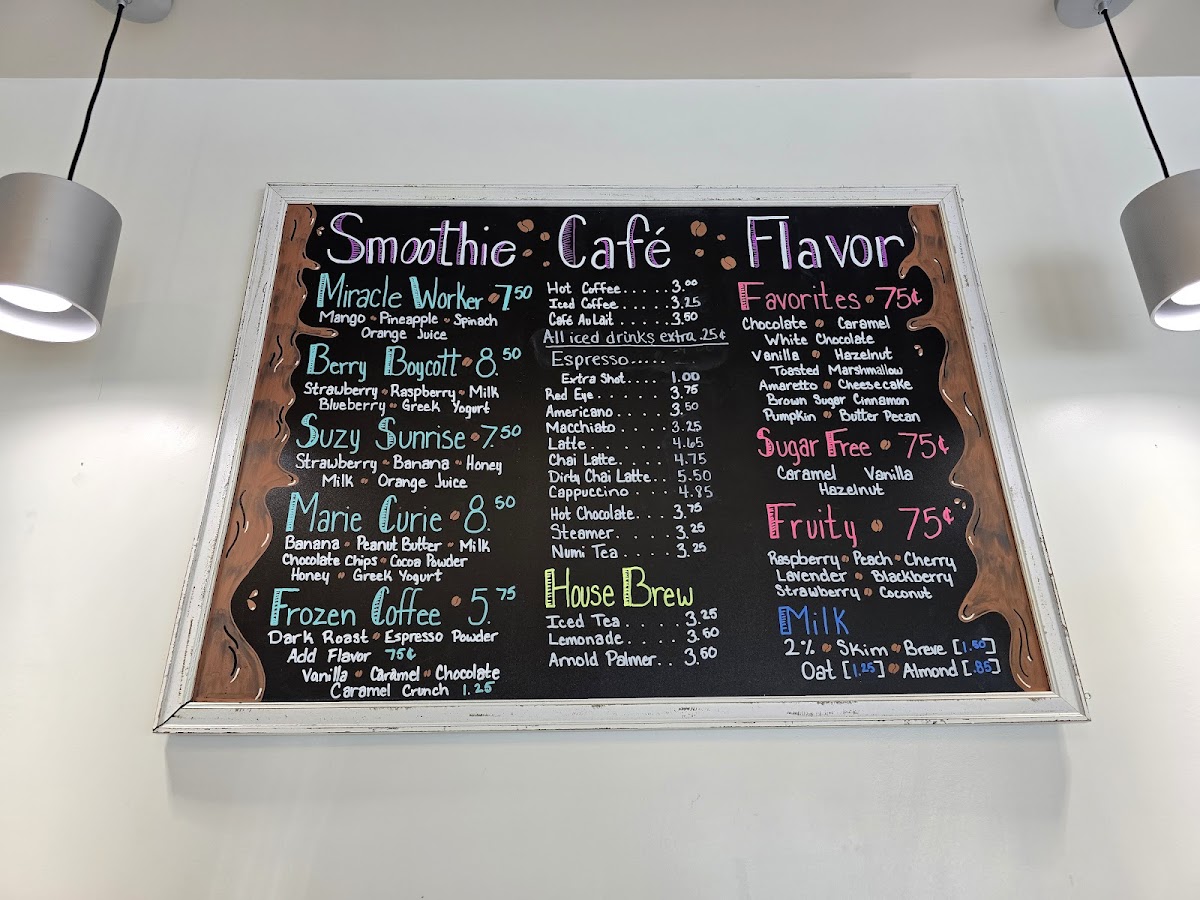 Smoothie
Miracle Worker 7.50
Mango Pineapple Spinach
Orange Juice
Berry Boycott 8.50
Strawberry Raspberry Milk
Blueberry Greek Yogurt
Suzy Sunrise 7.50
Strawberry Banana Honey
Milk Orange Juice
Marie Curie 8.50
Banana Peanut Butter Milk
Chocolate Chips Cocoa Powder
Honey Greek Yogurt
Frozen Coffee 5.75
Dark Roast Espresso Powder
Add Flavor 75¢
Vanilla Caramel Chocolate
Caramel Crunch 1.25
Café
Hot Coffee...... 3.00
Iced Coffee..... 3.25
Café Au Lait ..... 3.50
All iced drinks extra .25¢
Espresso.....
Extra Shot.... 1.00
Red Eye....... 3.75
Americano .... 3.50
Macchiato .... 3.25
Latte......... 4.65
Chai Latte..... 4.75
Dirty Chai Latte.. 5.50
Cappuccino .... 4.85
Hot Chocolate.... 3.75
Steamer....... 3.25
Numi Tea ..... 3.25
House Brew
Iced Tea....... 3.25
Lemonade..... 3.50
Arnold Palmer.. 3.50
Flavor
Favorites 75¢
Chocolate Caramel
White Chocolate
Vanilla Hazelnut
Toasted Marshmallow
Amaretto Cheesecake
Brown Sugar Cinnamon
Pumpkin Butter Pecan
Sugar Free 75¢
Caramel Vanilla
Hazelnut
Fruity 75¢
Raspberry Peach Cherry
Lavender Blackberry
Strawberry Coconut
Milk
2% Skim Breve [1.50]
Oat [1.25] Almond [.85]